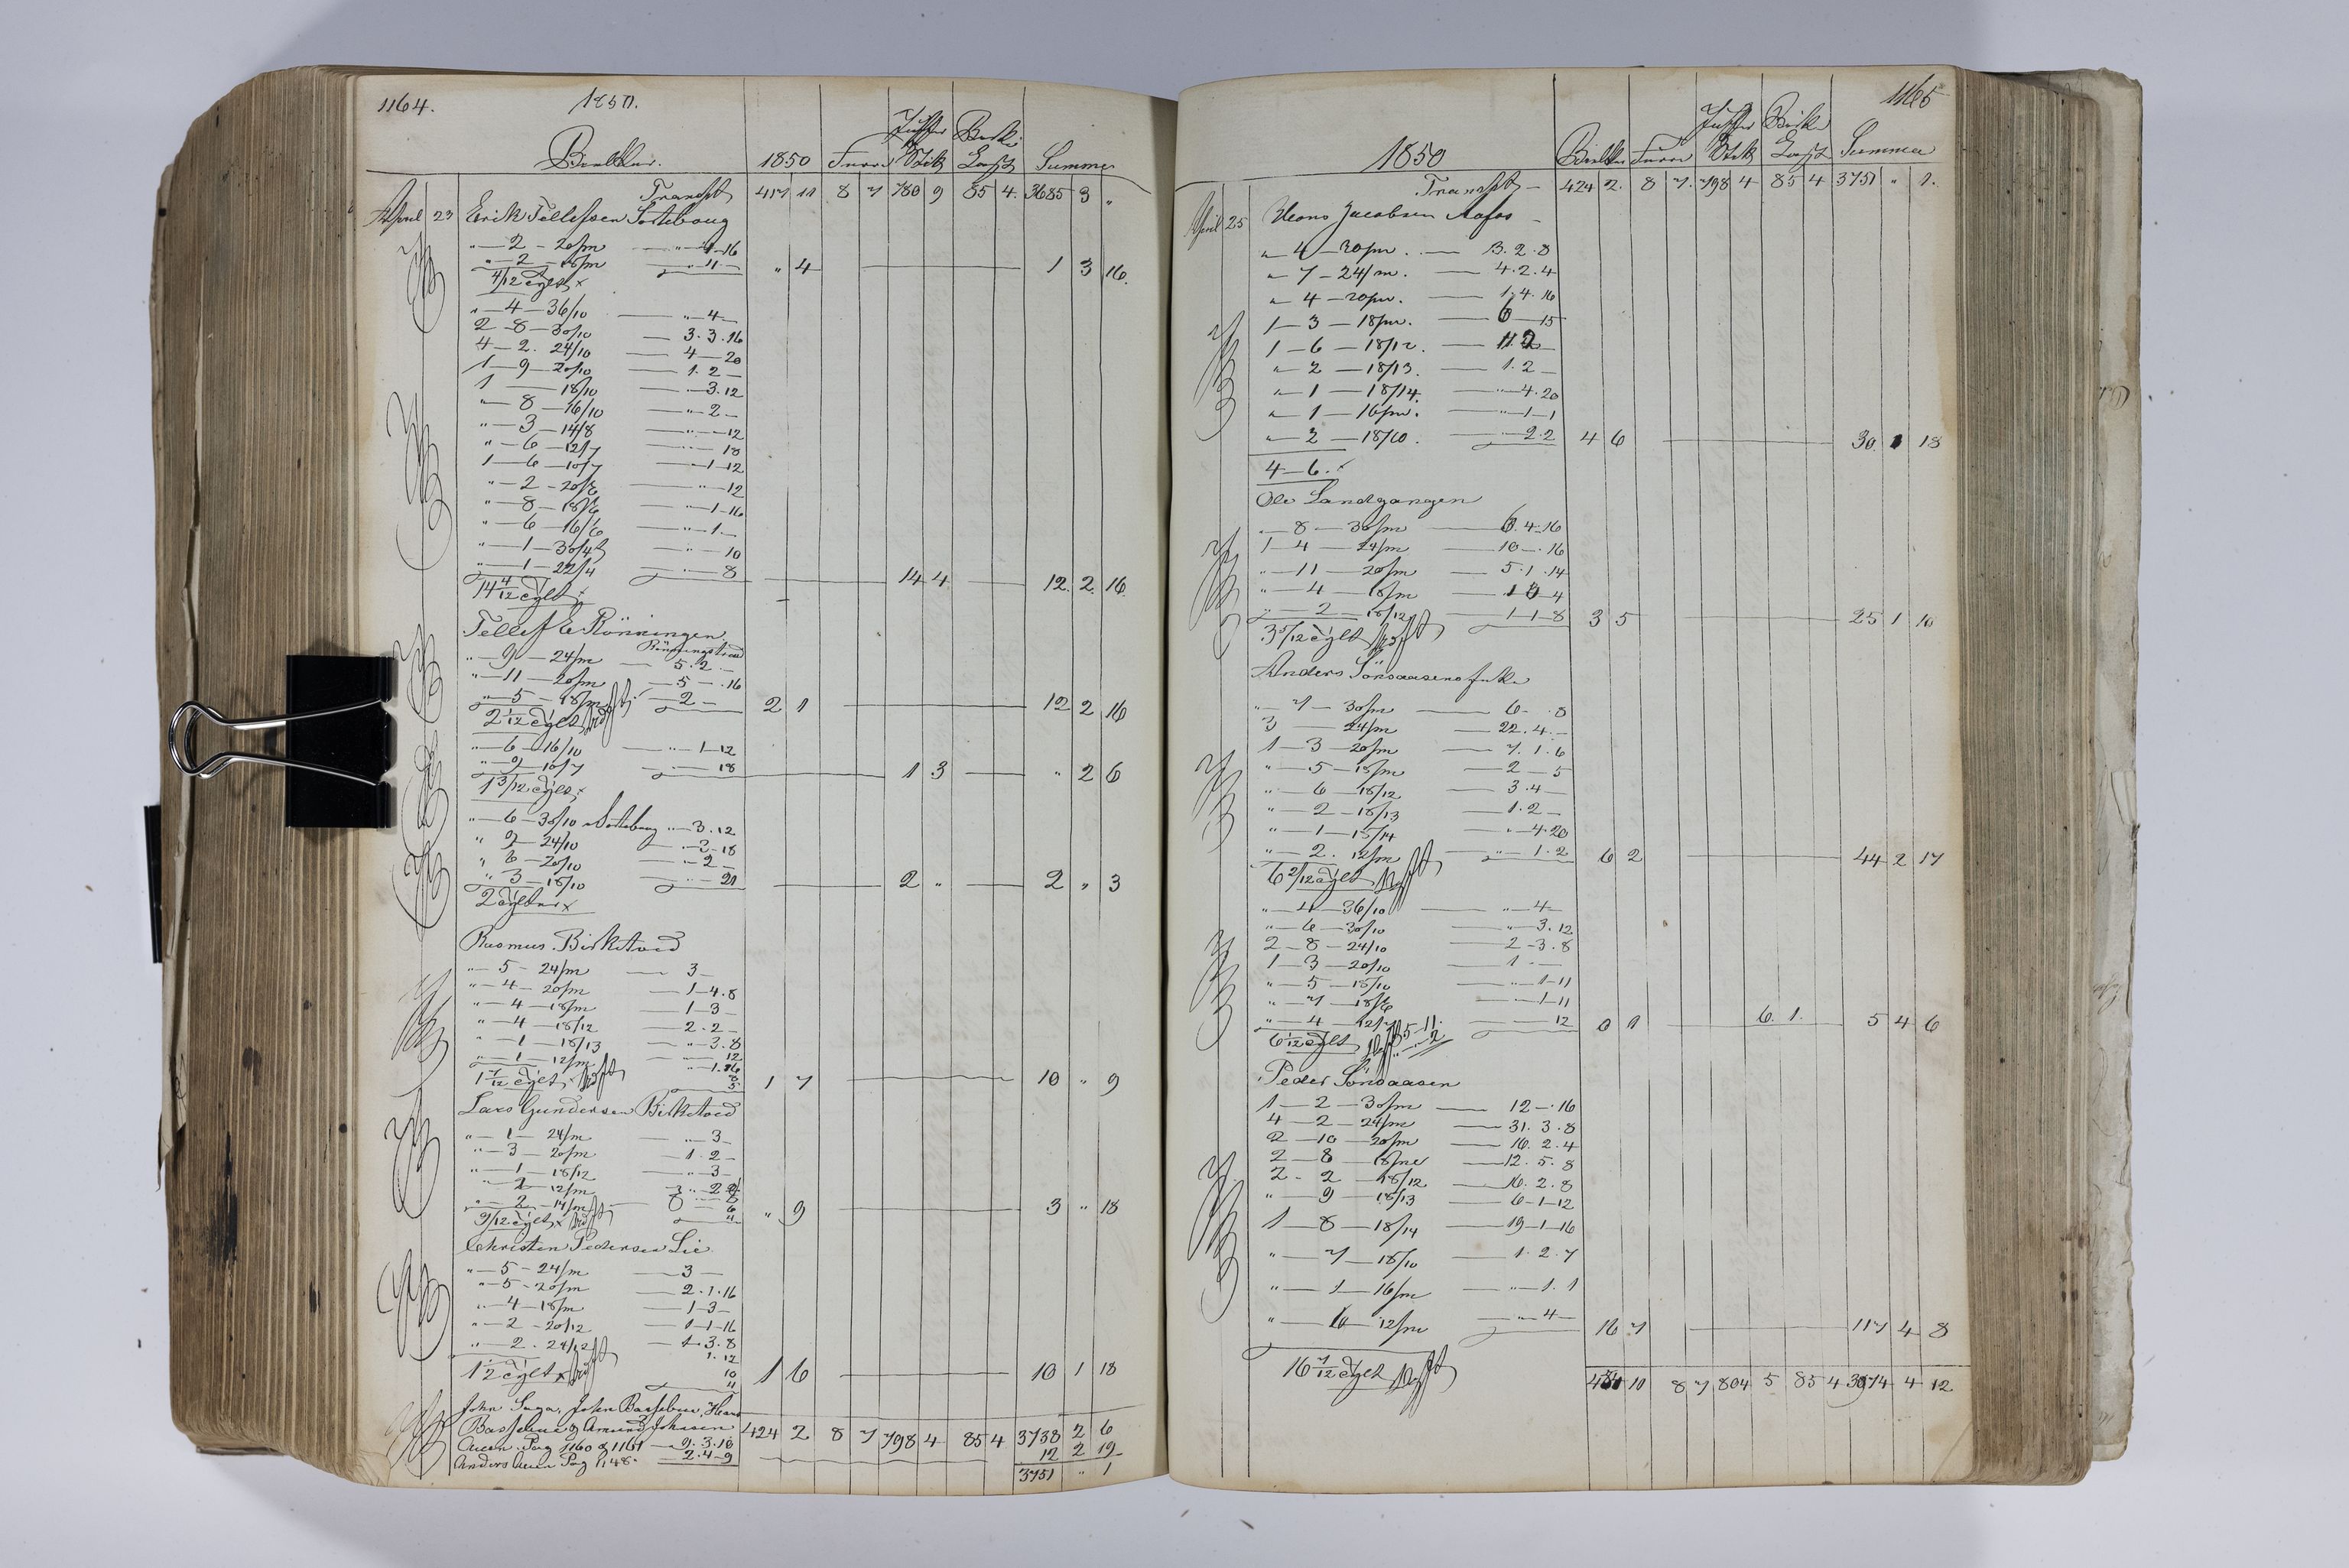 1164.
1850.
1850 Summa
Transpt 417 11 8 7 780 9 85 4. 3685 3 "
April 23 Erik Tellefsen Sorteboug
" — 2 — 20/m
" — 2 — 18/m " 4 1 3 16.
4/12 Tylt x
" — 4 — 36/10 — " 4 —
2 — 8 — 30/10 — 3. 3. 16
4 — 2. 24/10 — 4 — 20
1 — 9 — 20/10 — 1. 2 —
1 — 18/10 — " 3. 12
" — 8 — 16/10 — " 2 —
" — 3 — 14/8 — " — 12
" — 6 — 12/7 — 18
1 — 6 — 10/7 — " 1 — 12
" — 2 — 20/6 — " — 12
" — 8 — 18/6 — " 1 — 16
" — 6 — 16/6 — " 1 —
" — 1 — 30/4 — " — 10
" — 1 — 22/4 — " — 8 14 4 12. 2. 16.
14 4/12 Tylt x
Tellef E Rönningen
" — 9 — 24/m — 5. 2 —
" — 11 — 20/m — 5 — . 16
" — 5 — 18/m — 2 — 2 1 12 2 16
2 1/12 Tylt
" — 6 — 16/10 — " 1 — 12
" — 9 — 10/7 — 18 1 3 " 2 6
1 3/12 Tylt x
" — 6 — 30/10 Sorteboug " 3. 12
" 9 — 24/10 — " 3 — 18
" 6 — 20/10 — " 2 —
" 3 — 18/10 — " 21 2 " 2 " 3
2 Tylter x
Rasmus Birketvedt
" — 5 — 24/m — 3 —
" — 4 — 20/m — 1 — 4. 8
" — 4 — 18/m — 1 — 3 —
" — 4 — 18/12 — 2. 2 —
" — 1 — 18/13 — " 3. 8
" — 1 — 12/m — 12
1 7/12 Tylt 1 7 10 " 9
Lars Gundersen Birketvedt
" — 1 — 24/m — " 3 —
" — 3 — 20/m — 1. 2 —
" — 1 — 18/12 — " 3 —
" — 2 — 12/m
" — 2 — 14/m
9/12 Tylt x " 9 3 " 18
Christen Pedersen Lie
" — 5 — 24/m — 3 —
" — 5 — 20/m — 2. 1. 16
" — 4 — 18/m — 1 — 3 —
" — 2 — 20/12 — 1 — 1 — 16
" — 2. 24/12 — 1. 3. 8
1 6 10 1 18
John Suga, John Basseboe, Hans
Basseboe & Amund Johnsen 424 2 8 7 798 4 85 4 3738 2 6
Aaen Pag 1160 & 1161 — 9. 3. 10 12 2 19
Anders Aaen Pag 1148 — 2. 4 — 9 3751 " 1
1165
1850 Summa
Transpt — 424 2. 8 7. 798 4 85 4 3751 " 1.
April 25 Hans Jacobsen Aafos —
" 4 — 30/m. — 3. 2. 8
" 7 — 24/m. — 4. 2. 4
" 4 — 20/m. — 1. 4. 16
1 — 3 — 18/m. — 6 — 15
1 — 6 — 18/12.
" 2 — 18/13. — 1. 2 —
" 1 — 18/14. — " 4. 20
" 1 — 16/m. — " 1 — 1
" 2 — 18/10. — " 2. 2 4 6 30. 1 18
4 — 6. x
Ole Landgangen
" 8 — 30/m — 6. 4. 16
1 — 4 — 24/m — 10 — . 16
" — 11 — 20/m — 5. 1. 14
" — 4 — 18/m
" — 2 — 18/12 — 1 — 1 — 8 3 5 25 1 10
3 5/12 Tylt
Anders Sönsaasens Enke
" — 7 — 30/m — 6 — . 8
3 — 24/m — 22. 4. —
1 — 3 — 20/m — 7. 1. 6
" — 5 — 18/m — 2 — 5
" — 6 — 18/12 — 3. 4 —
" — 2 — 18/13 — 1. 2 —
" — 1 — 18/14 — " 4. 20
" — 2. 12/m — " 1. 2 6 2 44 2 17
6 2/12 Tylt
" — 4 — 36/10 — " 4 —
" — 6 — 30/10 — " 3. 12
2 — 8 — 24/10 — 2 — 3. 8
1 — 3 — 20/10 — 1 — —
" — 5 — 18/10 — " 1 — 11
" — 7 — 18/6 — " 1 — 11
" — 4 — 12/7 — 12 6 1 6. 1. 5 4 6
6 1/12 Tylt
Peder Sönsaasen
1 — 2 — 30/m — 12 — . 16
4 — 2 — 24/m — 31. 3. 8
2 — 10 — 20/m — 16. 2. 4
2 — 8 — 18/m — 12. 5. 8
2 — 2 — 18/12 — 16. 2. 8
" — 9 — 18/13 — 6 — 1 — 12
1 — 8 — 18/14 — 19 — 1 — 16
" — 7 — 18/10 — 1. 2. 7
" — 1 — 16/m — " 1. 1
" — 10 — 12/m — " 4 — 16 7 117 4 8
16 7/12 Tylt
10 8 7 804 5 85 4 3974 4 12